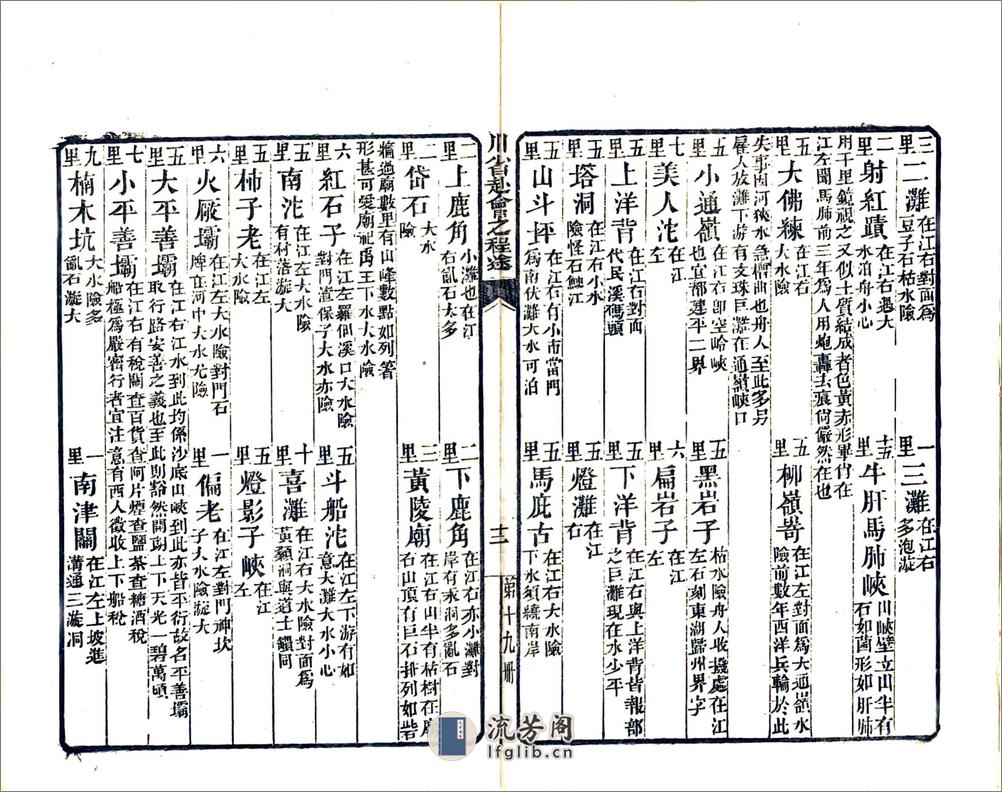 三里 二灘 在江右對面為豆子石枯水險
一里 三灘 在江右多泡漩
二里 射紅蹟 在江右遇大水泊舟小心
十五里 牛肝馬肺峽 山峽壁立山半有石如菌形如肝肺
用千里鏡視之又似土質結成者色黃赤形畢肖在
江左聞馬肺前三年為人用炮轟去痕尚嚴然在也
五里 大佛練 在江右大水險
五里 柳嶺嵜 在江左對面為大通嶺水險前數年西洋兵輪於此
失事因河狹水急灣曲也舟人至此多另
雇人放灘下游有支珠巨灘在通嶺峽口
五里 小通嶺 在江右卽空岭峽也宜都建平二界
五里 黑岩子 枯水險舟人收撓處在江左右刻東湖歸州界字
七里 美人沱 在江左
六里 扁岩子 在江左
五里 上洋背 在江右對面代民溪碼頭
一里 下洋背 在江右與上洋背皆報部之巨灘現在水少平
五里 塔洞 在江右小水險怪石鯁江
一里 燈灘 在江右
五里 山斗坪 在江右有小市當門為南伏灘大水可泊
五里 馬庇古 在江右大水險下水須繞南岸
川省赴會垣之程途
十二
第十九冊
二里 上鹿角 小灘也在江右亂石太多
二里 下鹿角 在江右亦小灘對岸有水洞多亂石
二里 岱石 大水險
三里 黃陵廟 在江右山半有枯樹在廟右山頂有巨石排列如岩
牆過廟數里有山峰數點如列笒
形甚可愛廟祀禹王下水大水險
六里 紅石子 在江左羅佃溪口大水險對門道保子大水亦險
五里 斗船沱 在江左下游有如意大灘大水小心
五里 南沱 在江左大水險有村落漩大
十里 喜灘 在江右大水險對面為黃顙洞與道士鎖同
五里 柿子老 在江左大水險
五里 燈影子峽 在江左
六里 火厰壩 在江左大水險對門石牌在河中大水尤險
一里 偏老 在江左對門神坎子大水險漩大
五里 大平善壩 在江右江水到此均係沙底山峽到此亦皆平衍故名平善壩取行路安善之義也至此則豁然開朗上下天光一碧萬頃
七里 小平善壩 在江右有稅關查百貨查阿片煙查鹽茶查糖酒稅船極為嚴密行者宜注意有西人徵收上下船稅
九里 楠木坑 大水險多亂石漩大
一里 南津關 在江左上坡進溝通三漩洞
流芳阁
lfglib.cn